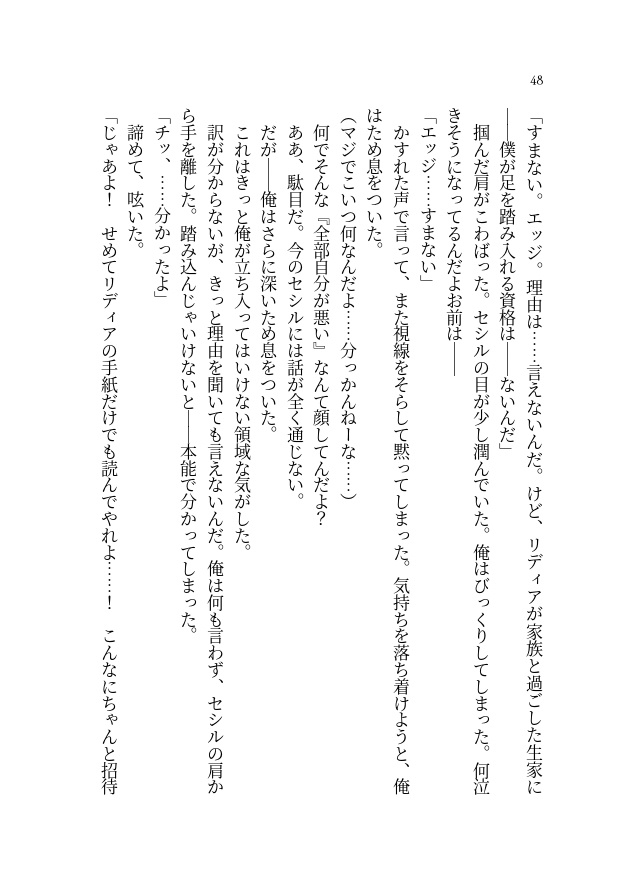 48
「すまない。エッジ。理由は……言えないんだ。けど、リディアが家族と過ごした生家に
――僕が足を踏み入れる資格は――ないんだ」
　掴んだ肩がこわばった。セシルの目が少し潤んでいた。俺はびっくりしてしまった。何泣
きそうになってるんだよお前は――
「エッジ……すまない」
　かすれた声で言って、また視線をそらして黙ってしまった。気持ちを落ち着けようと、俺
はため息をついた。
（マジでこいつ何なんだよ……分っかんねーな……）
　何でそんな『全部自分が悪い』なんて顔してんだよ？
　ああ、駄目だ。今のセシルには話が全く通じない。
　だが――俺はさらに深いため息をついた。
　これはきっと俺が立ち入ってはいけない領域な気がした。
　訳が分からないが、きっと理由を聞いても言えないんだ。俺は何も言わず、セシルの肩か
ら手を離した。踏み込んじゃいけないと――本能で分かってしまった。
「チッ、……分かったよ」
　諦めて、呟いた。
「じゃあよ！　せめてリディアの手紙だけでも読んでやれよ……！　こんなにちゃんと招待